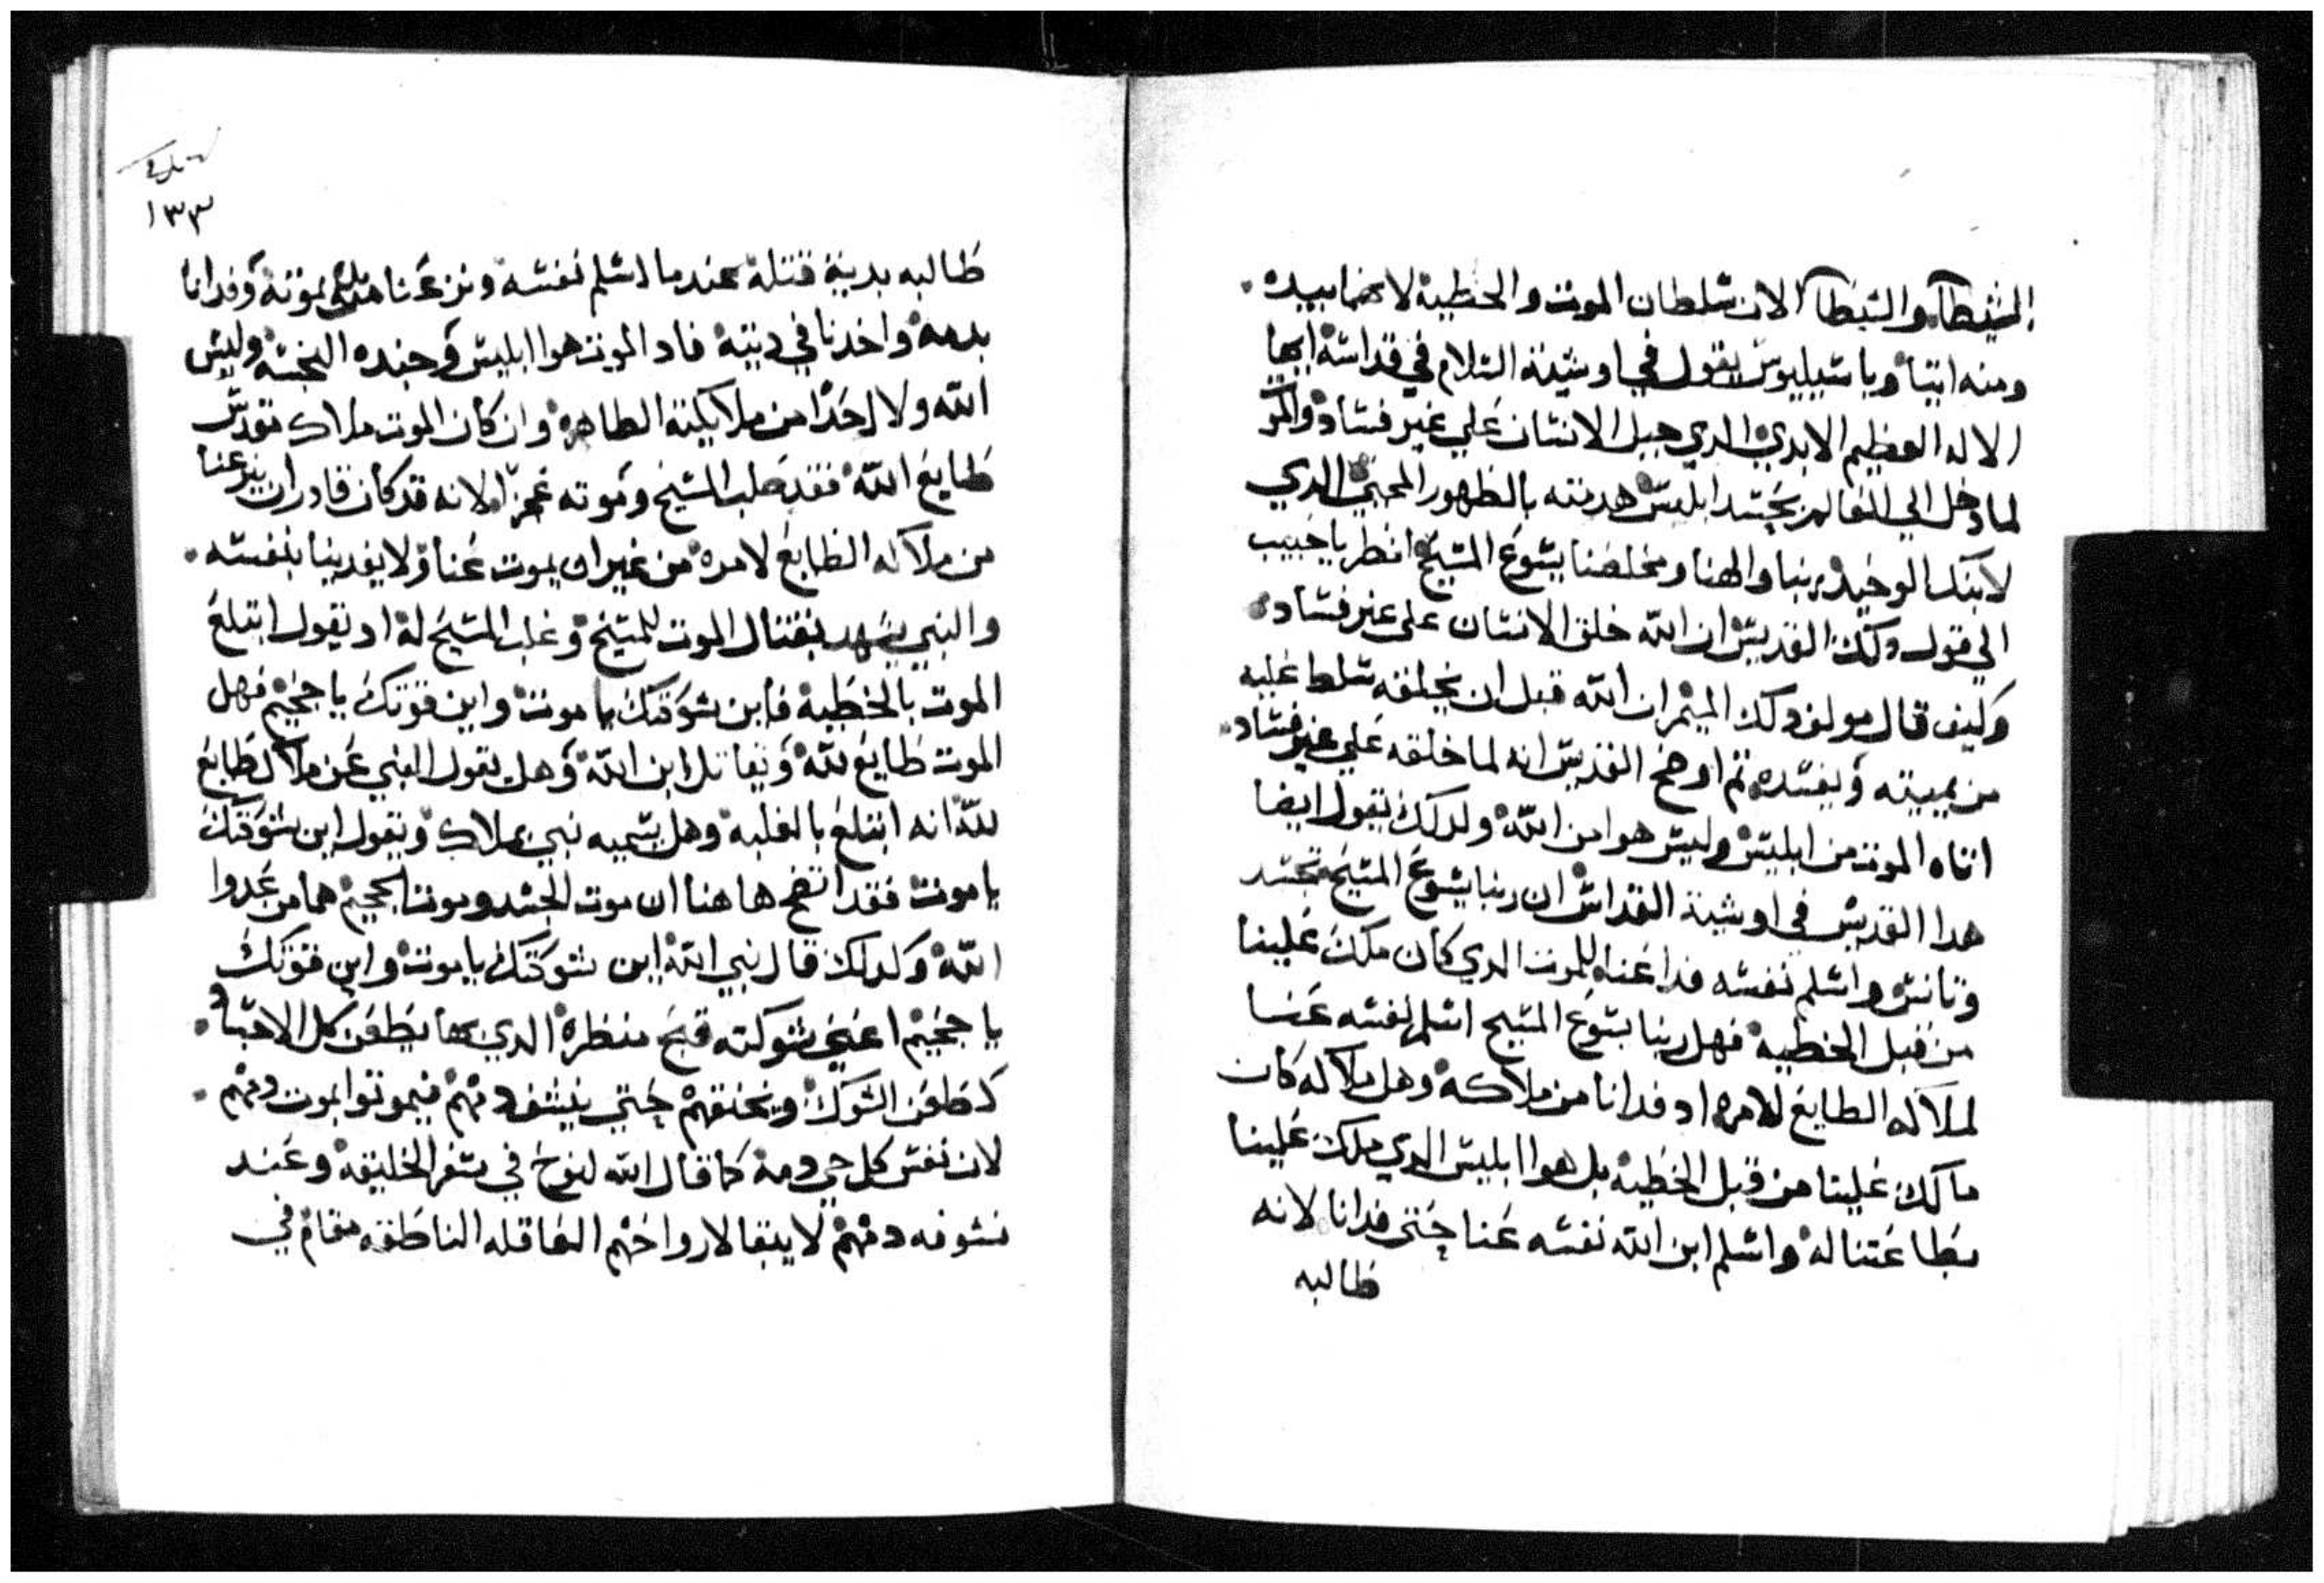 الشيطان والشيطان الان سلطان الموت والخطية لانهما بيده
ومنه اتيا وباسيليوس يقول في اوشية السلام في قداسه ايها
الاله العظيم الابدي الدي جبل الانسان علي غير فساد والموت
لما دخل الي العالم بحسد ابليس هدمته بالظهور المحيي الدي
لابنك الوحيد ربنا والهنا ومخلصنا يسوع المسيح انظر يا حبيب
الي قول دلك القديس ان الله خلق الانسان علي غير فساد
وكيف قال مولف دلك الميمر ان الله قبل ان يخلقه سلط عليه
من يميته ويفسده تم اوضح القديس انه لما خلقه علي غير فساد
اتاه الموت من ابليس وليس هو من الله ولدلك يقول ايضا
هدا القديس في اوشية القداس ان ربنا يسوع المسيح تجسد
وتانس واسلم نفسه فدا عنا للموت الدي كان ملك علينا
من قبل الخطية فهل ربنا يسوع المسيح اسلم نفسه عنا
لملاكه الطايع لامره او فدانا من ملاكه وهل ملاكه كان
مالك علينا من قبل الخطية بل هوا ابليس الدي ملك علينا
بطاعتنا له واسلم ابن الله نفسه عنا حتي فدانا لانه
طالبه
١٣٣
طالبه بدية قتله عندما اسلم نفسه ونزعنا منه بموته وفدانا
بدمه واخدنا في ديته فاد الموت هوا ابليس وجنده النجسه وليس
الله ولا احدا من ملايكته الطاهره وان كان الموت ملاك مقدس
طايع الله فقد صلب المسيح وموته عجزا لانه قد كان قادر ان ينزعنا
من ملاكه الطايع لامره من غير ان يموت عنا ولا يفدينا بنفسه
والنبي يشهد بقتال الموت للمسيح وغلب المسيح له اد يقول ابتلع
الموت بالخطيه فاين شوكتك يا موت واين قوتك يا جحيم فهل
الموت طايع لله ويقاتل ابن الله وهل يقول النبي عن ملاك طايع
لله انه ابتلع بالغلبه وهل يسميه نبي بملاك ويقول اين شوكتك
يا موت فقد اتضح هاهنا ان موت الجسد وموت الجحيم هما من عدوا
الله ولدلك قال نبي الله اين شوكتك يا موت واين قوتك
يا جحيم اعني شوكته قبح منظره الدي بها يطعن كل الاجساد
كطعن الشوك ويخنقهم حتي ينشف دمهم فيموتوا بموت دمهم
لان نفس كل حي دمه كما قال الله لنوح في سفر الخليقه وعند
نشوفه دمهم لا يبقا لارواحهم العاقله الناطقه مقام في